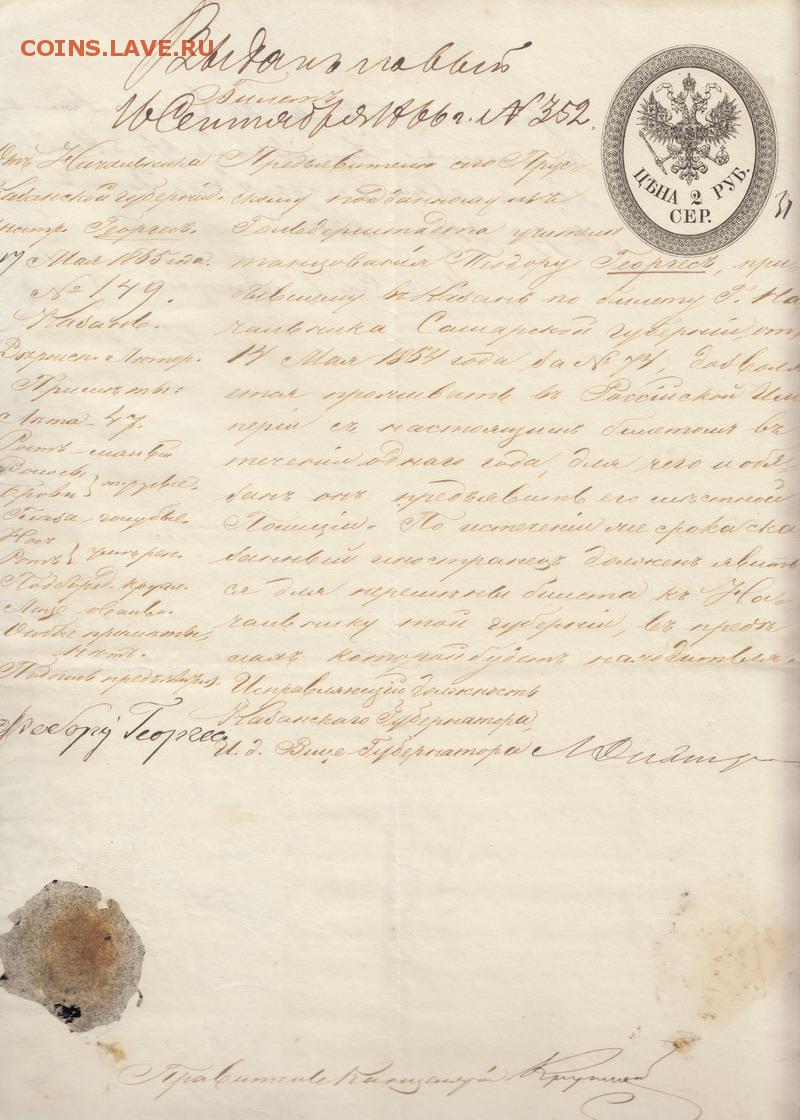 COINS.LAVE.RU
Выданъ новый
Билетъ
16 Сентября 1866 г. № 352.
ЦѢНА 2 РУБ.
СЕР.
31
Отъ Начальника
Казанской губернiи.
иностр. Георгесъ.
17 Мая 1865 года.
№ 149.
Казань.
Примѣты:
Лѣта – 47.
Ростъ – малый
Волосы
Брови } т. русые.
Глаза – голубые.
Носъ
Ротъ } умѣрен.
Подбород. кругл.
Лице овальн.
Особые примѣты,
нѣтъ.
Подпись предъявл.
Георгес
Предъявителю сего Прус-
скому подданному изъ
учителю
танцованiя Теодору Георгесъ, при-
бывшему въ Казань по билету Г. На-
чальника Самарской губернiи, отъ
14 Мая 1864 года за № 74, дозволя
ется проживать въ Россiйской Им
перiи съ настоящимъ билетомъ въ
теченiи однаго года, для чего и обя-
занъ онъ предъявить его мѣстной
Полицiи. По истеченiи же срока ска
занный иностранецъ долженъ явить
ся для перемѣны билета къ На-
чальнику той губернiи, въ предѣ
лахъ которой будетъ находиться.
Исправляющiй должность
Казанскаго Губернатора,
И. д. Вице-Губернатора
Правитель Канцелярiи